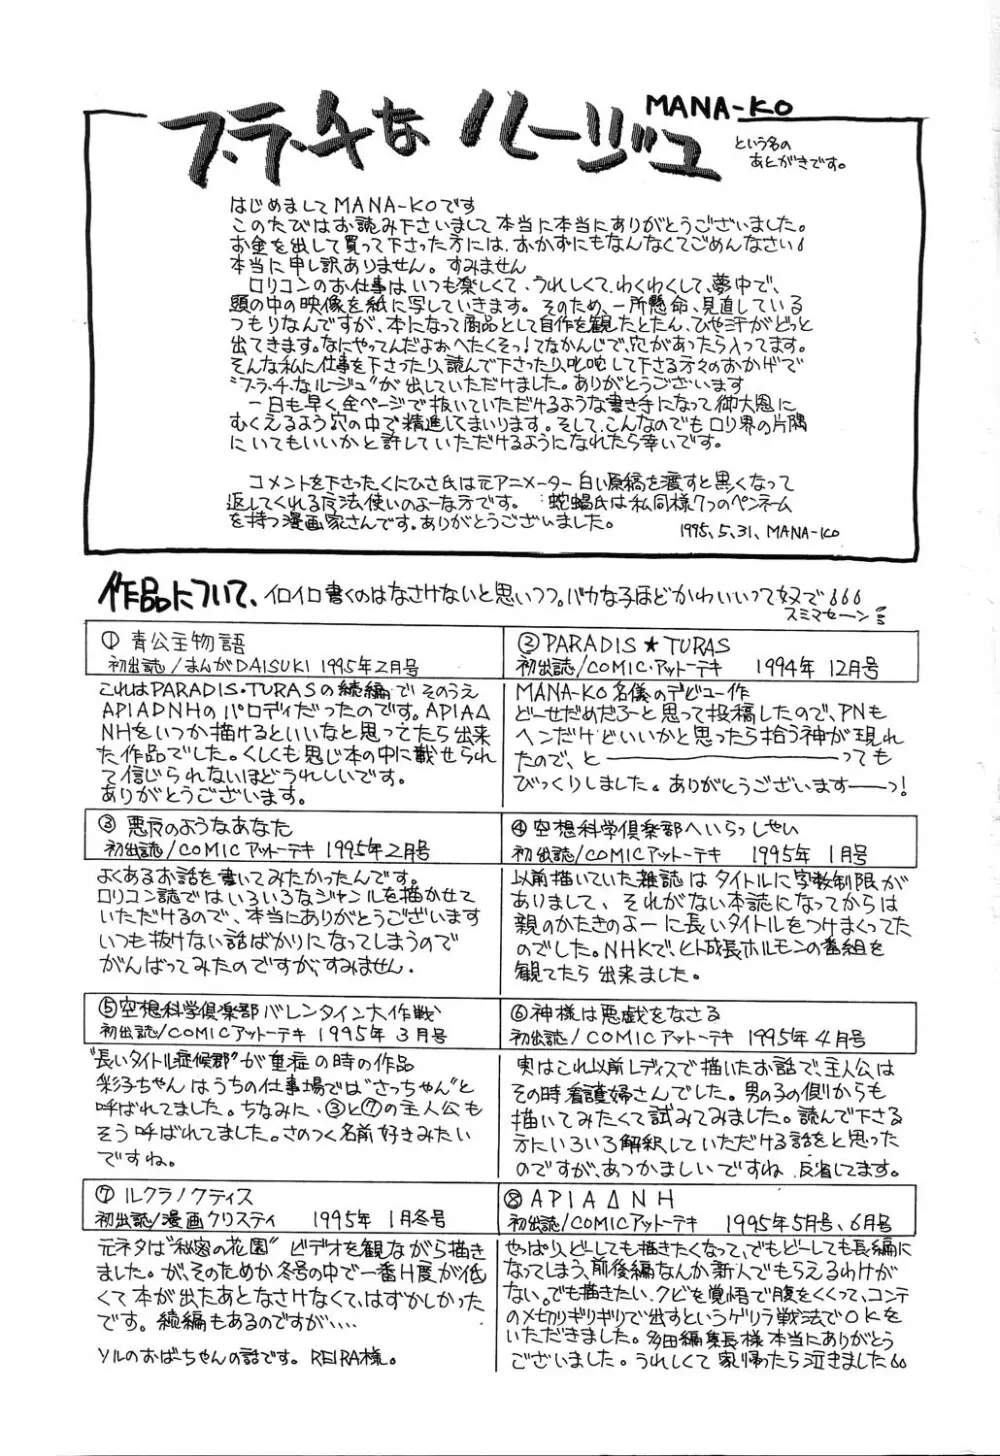 MANA-KO
フ・ラ・チなルージュ
という名の
あとがきです。
はじめましてMANA-KOです
このたびはお読み下さいまして本当に本当にありがとうございました。
お金を出して買って下さった方には、おかずにもなんなくてごめんなさい
本当に申し訳ありません。すみません
ロリコンのお仕事はいつも楽しくて、うれしくて、わくわくして、夢中で、
頭の中の映像を紙に写していきます。そのため、一所懸命、見直している
つもりなんですが、本になって商品として自作を観たとたん、ひや汗がどっと
出てきます。なにやってんだよおへたくそっ！てなかんじで、穴があったら入ってます。
そんな私に仕事を下さったり、読んで下さったり、叱咤して下さる方々のおかげで
"フ・ラ・チ・なルージュ"が出していただけました。ありがとうございます
一日も早く全ページで抜いていただけるような書き手になって御大恩に
むくえるよう穴の中で精進してまいります。そして、こんなのでもロリ界の片隅
にいてもいいかと許していただけるようになれたら幸いです。
コメントを下さった、くにひさ氏は元アニメーター白い原稿を渡すと黒くなって
返してくれる魔法使いのよーな方です。蛇蝎氏は私同様7つのペンネーム
を持つ漫画家さんです。ありがとうございました。
1995.5.31. MANA-KO
作品について、イロイロ書くのはなさけないと思いつつ。バカな子ほどかわいいって奴で
スミマセーン
① 青公主物語
初出誌/まんがDAISUKI 1995年2月号
これはPARADIS・TURASの続編でそのうえ
APIAΔNHのパロディだったのです。APIAΔ
NHをいつか描けるといいなと思ってたら出来
た作品でした。くしくも同じ本の中に載せられ
て信じられないほどうれしいです。
ありがとうございます。
② PARADIS★TURAS
初出誌/COMIC・アットーテキ 1994年 12月号
MANA-KO名儀のデビュー作
どーせだめだろーと思って投稿したので、PNも
ヘンだけどいいかと思ったら拾う神が現れ
たので、と――――っても
びっくりしました。ありがとうございますーーっ！
③ 悪夜のようなあなた
初出誌/COMICアットーテキ 1995年2月号
よくあるお話を書いてみたかったんです。
ロリコン誌ではいろいろなジャンルを描かせて
いただけるので、本当にありがとうございます
いつも抜けない話ばかりになってしまうので
がんばってみたのですが、すみません.
④ 空想科学倶楽部へいらっしゃい
初出誌/COMICアットーテキ 1995年 1月号
以前描いていた雑誌はタイトルに字数制限が
ありまして、それがない本誌になってからは
親のかたきのよーに長いタイトルをつけまくってた
のでした。NHKで、ヒト成長ホルモンの番組を
観てたら出来ました。
⑤ 空想科学倶楽部バレンタイン大作戦
初出誌/COMICアットーテキ 1995年 3月号
"長いタイトル症候群"が重症の時の作品
彩子ちゃんはうちの仕事場では"さっちゃん"と
呼ばれてました。ちなみに、③と⑦の主人公も
そう呼ばれてました。さのつく名前好きみたい
ですね。
⑥ 神様は悪戯をなさる
初出誌/COMICアットーテキ 1995年 4月号
実はこれ以前レディスで描いたお話で、主人公は
その時看護婦さんでした。男の子の側からも
描いてみたくて試みてみました。読んで下さる
方にいろいろ解釈していただける話をと思った
のですが、あつかましいですね 反省してます。
⑦ ルクラノクティス
初出誌/漫画クリスティ 1995年 1月冬号
元ネタは"秘密の花園"ビデオを観ながら描き
ました。が、そのためか冬号の中で一番H度が低
くて本が出たあとなさけなくて、はずかしかった
です。続編もあるのですが....
ソルのおばーちゃんの話です。REIRA様。
⑧ APIAΔNH
初出誌/COMICアットーテキ 1995年5月号、6月号
やっぱり、どーしても描きたくなって、でもどーしても長編に
なってしまう、前後編なんか新人でもらえるわけが
ない。でも描きたい。クビを覚悟で腹をくくって、コンテ
の〆切りギリギリで出すというゲリラ戦法でOKを
いただきました。多田編集長様本当にありがとう
ございました。うれしくて家帰ったら泣きました